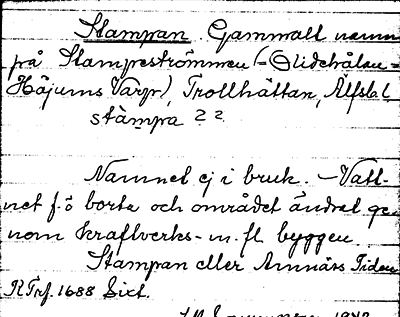 Stampan Gammalt namn
på Stampeströmmen (= Olidehålan =
Höjums Varp), Trollhättan, Älfsb l.
stàmpa 2 2
Namnet ej i bruk. – Vatt-
net f. ö borta och området ändrat ge-
nom kraftverks- m. fl byggen.
Stampan eller Annärs Tiden
R Trf. 1688 Sixt.